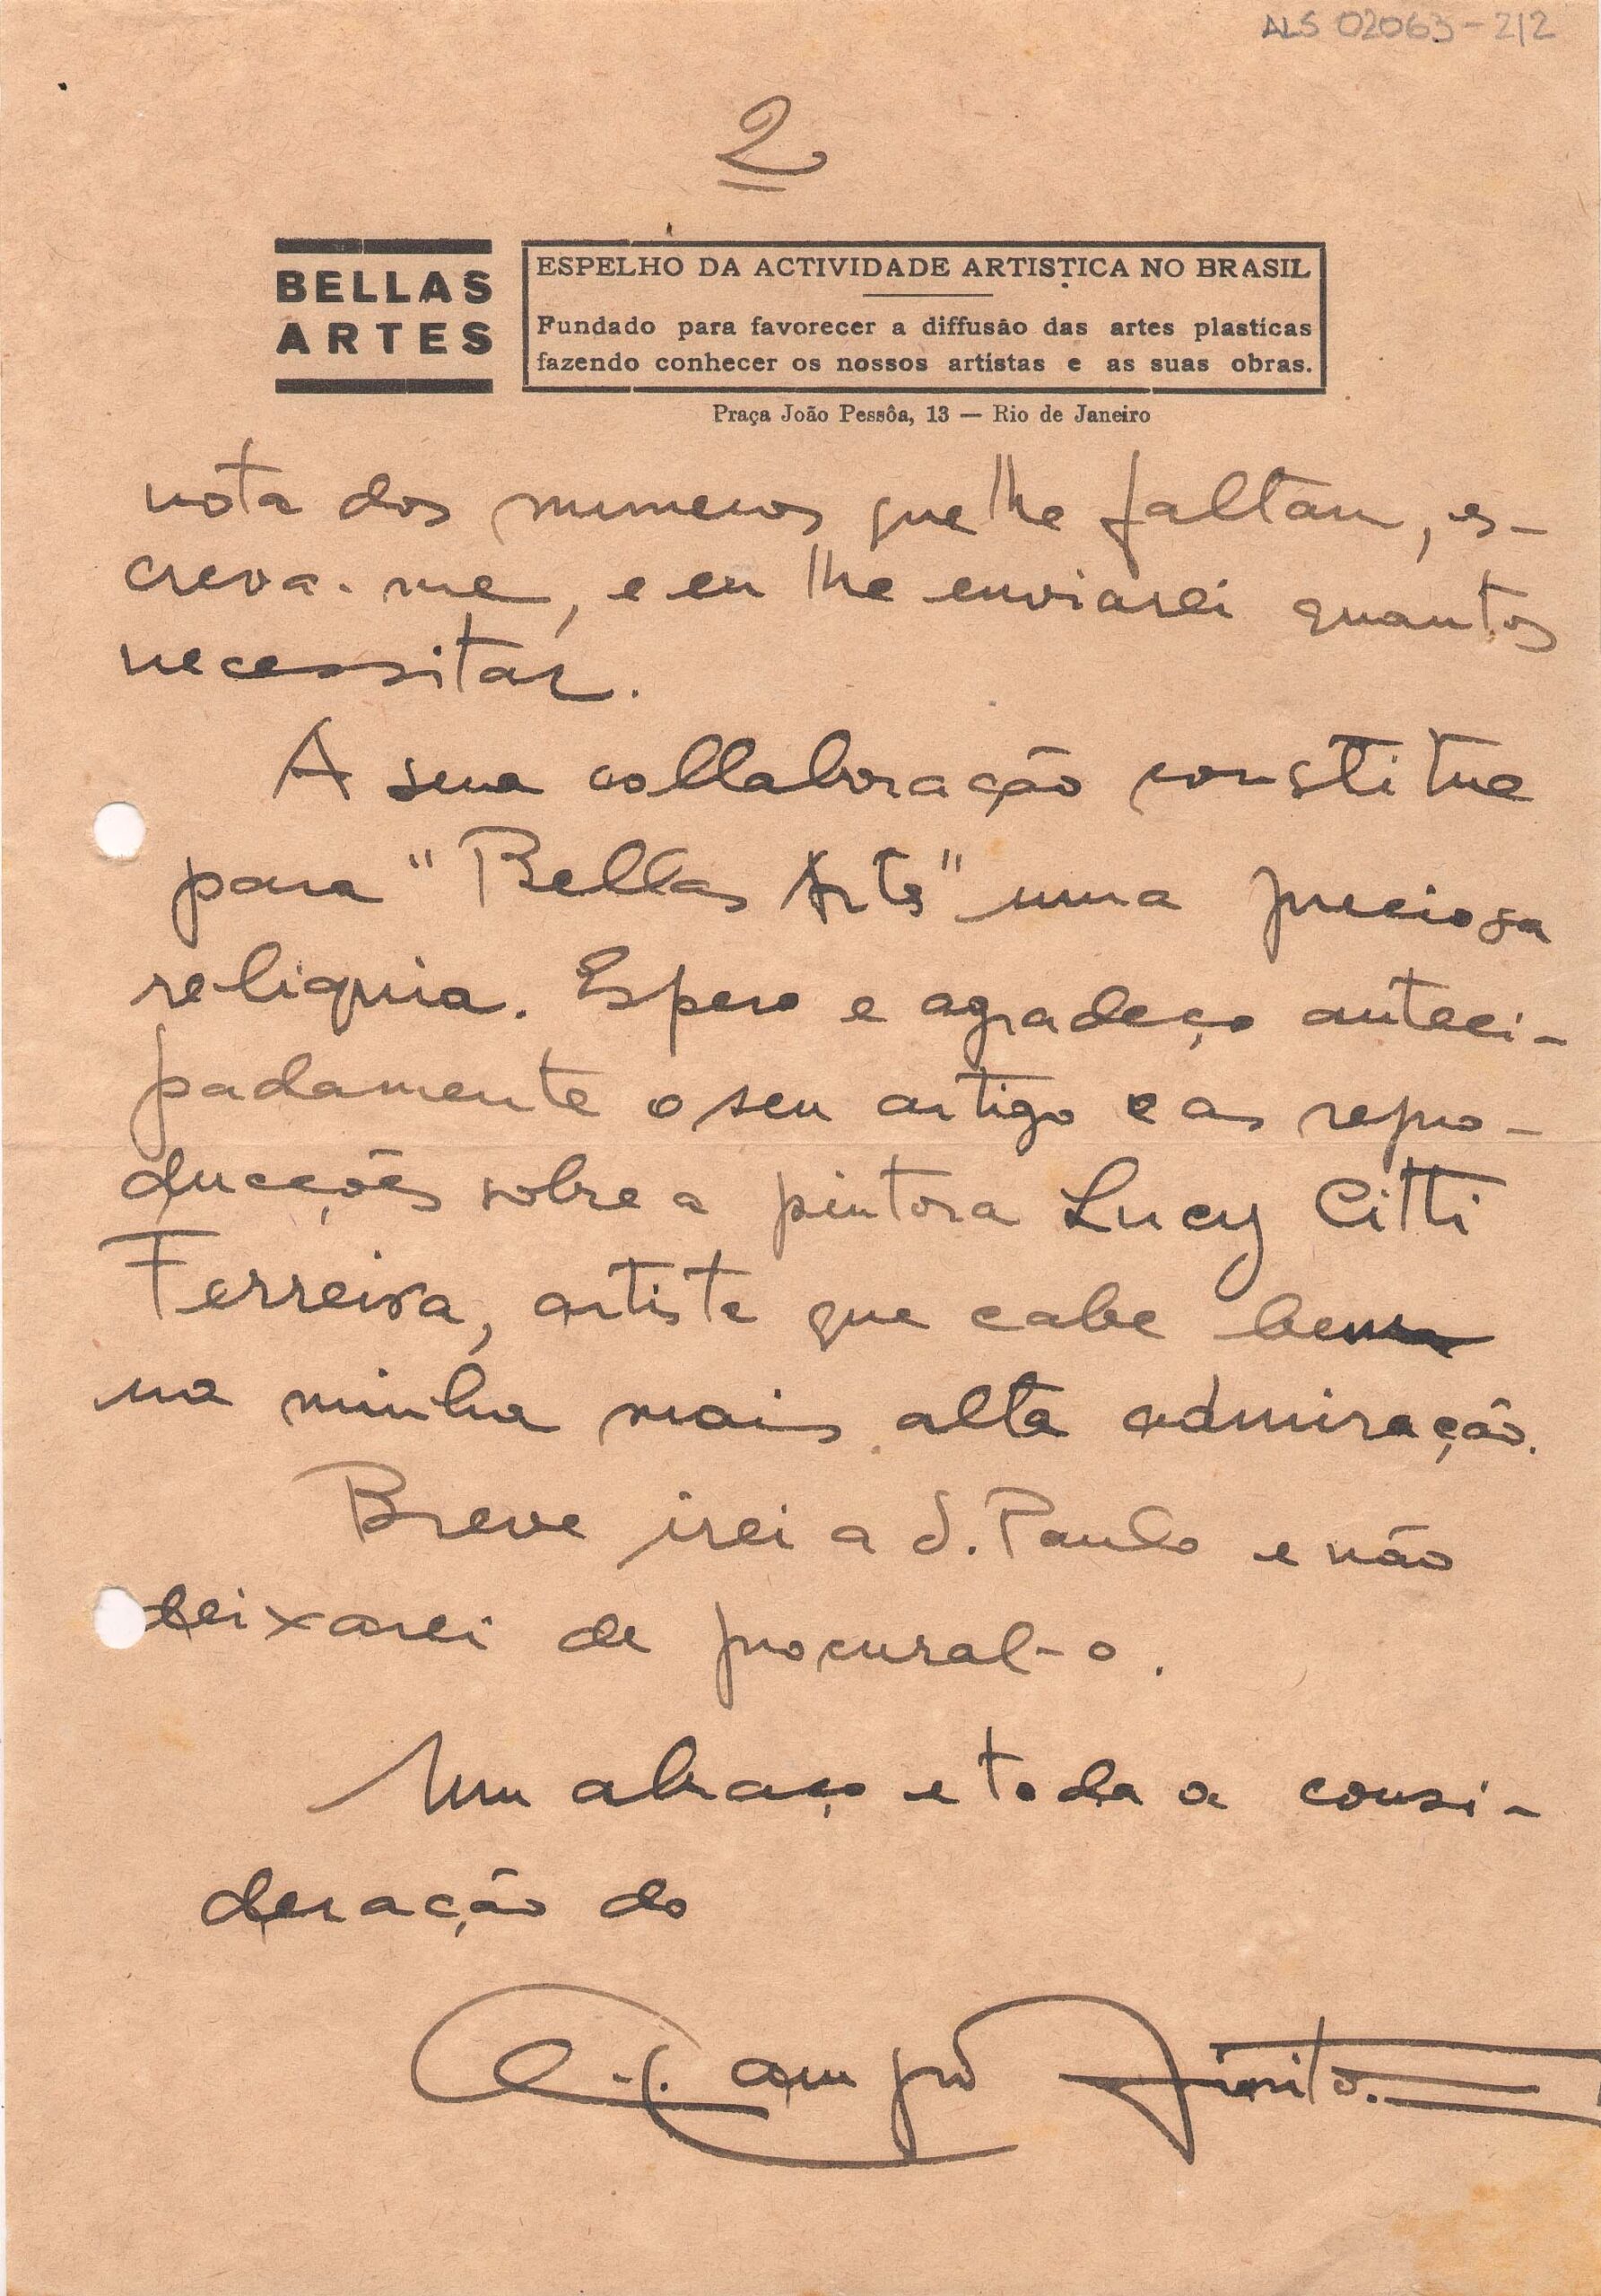 ALS 02063-2|2
2
BELLAS
ARTES
ESPELHO DA ACTIVIDADE ARTISTICA NO BRASIL
Fundado para favorecer a diffusão das artes plasticas
fazendo conhecer os nossos artistas e as suas obras.
Praça João Pessôa, 13 — Rio de Janeiro
nota dos numeros que lhe faltam, es-
creva-me, e eu lhe enviarei quantos
necessitar.
A sua collaboração constitue
para "Bellas Artes" uma preciosa
reliquia. Espero e agradeço anteci-
padamente o seu artigo e as repro-
ducções sobre a pintora Lucy Citti
Ferreira, artista que cabe bem
na minha mais alta admiração.
Breve irei a S. Paulo e não
deixarei de procural-o.
Um abraço e toda a consi-
deração do